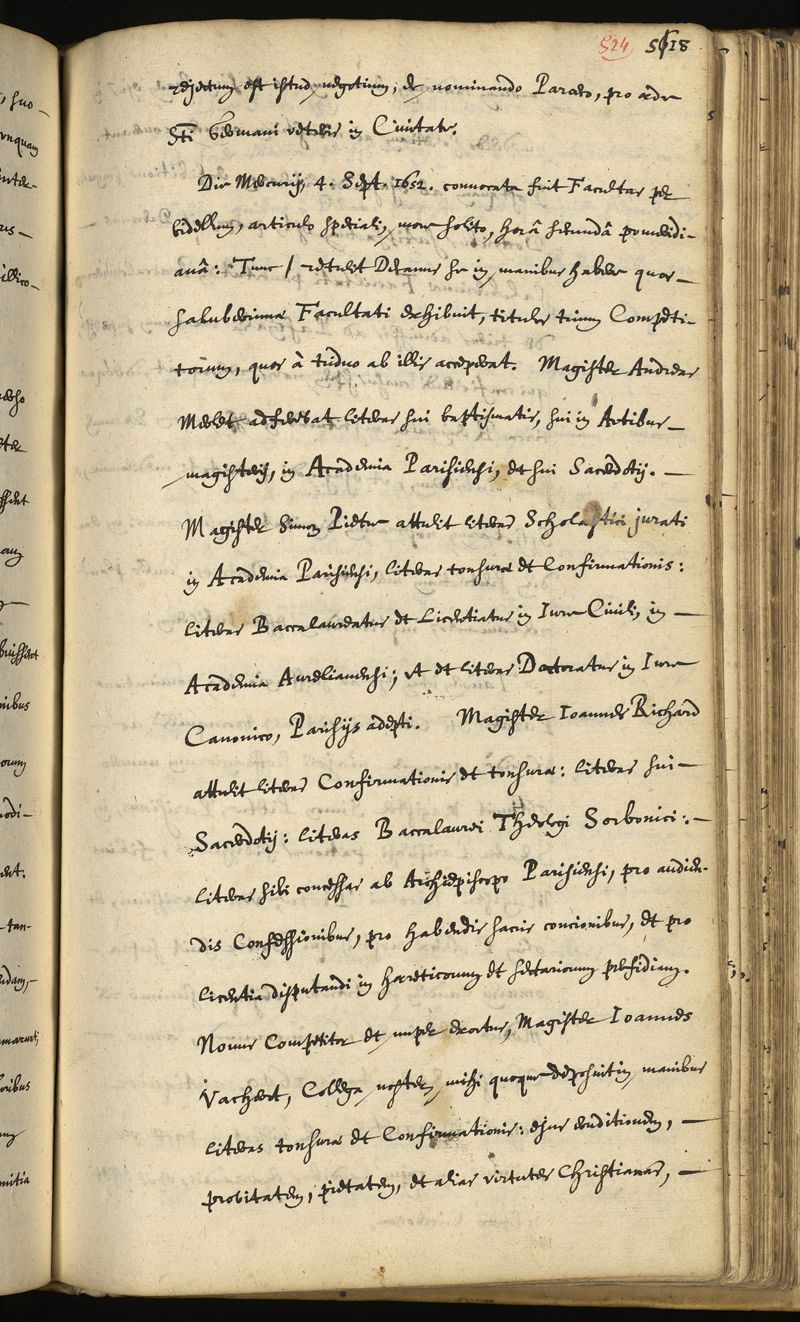 524 5618
rejectum est istud negotium, de nominando Paroco, pro æde
Sti Germani veteris in Civitate.
Die Mercurij, 4. Sept. 1652. convocata fuit Facultas per
bidellum, articulo speciali, more solito, horâ secundâ pomeridi-
anâ: Tunc / retulit Decanus se in manibus habere quos
saluberrimæ Facultati exhibuit, titulos trium Competi-
torum, quos à triduo ab illis acceperat. Magister Andreas
Merlet adferebat literas sui baptismatis, sui in Artibus
magisterij, in Academia Parisiensi, et sui Sacerdotij.
Magister Simon Pietre attulit literas Scholastici jurati
in Academia Parisiensi, literas tonsuræ et Confirmationis:
literas Baccalaureatus et Licentiatus in Iure Civili, in
Academia Aurelianensi; ut et literas Doctoratus in Iure
Canonico, Parisijs adepti. Magister Ioannes Richard
attulit literas Confirmationis et tonsuræ: literas sui
Sacerdotij: literas Baccalaurei Theologi Sorbonici:
literas sibi concessas ab Archiepiscopo Parisiensi, pro audien-
dis Confessionibus, pro habendis sacris concionibus, et pro
licentia disputandi in hæreticorum et sectariorum perfidiam.
Novus Competitor et nuper exortus, Magister Ioannes
Vacherot, Collega noster, mihi quoque deposuit in manibus
literas tonsuræ et Confirmationis: ejus eruditionem,
probitatem, pietatem, et alias virtutes Christianas,